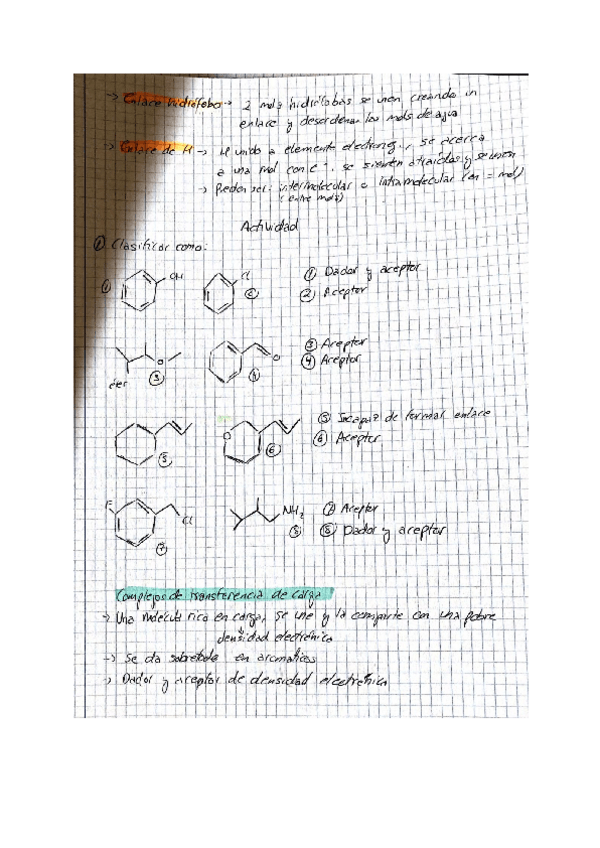 -> Enlace hidrófobo -> 2 mols hidrófobas se unen creando un
enlace y desordenan las mols de agua
-> Enlace de H -> H unido a elemento electroneg., se acerca
a una mol con e⁻. se sienten atraídas y se unen
-> Pueden ser: intermolecular o intramolecular (en = mol)
(entre mols)
Actividad
① Clasificar como:
① OH
Cl ②
① Dador y aceptor
② Aceptor
O ③
éter
O ④
③ Aceptor
④ Aceptor
⑤
O ⑥
⑤ Incapaz de formar enlace
⑥ Aceptor
F Cl ⑦
NH₂ ⑧
⑦ Aceptor
⑧ Dador y aceptor
Complejos de transferencia de carga
-> Una molécula rica en carga, se une y la comparte con una pobre
densidad electrónica
-> Se da sobretodo en aromáticos
-> Dador y aceptor de densidad electrónica